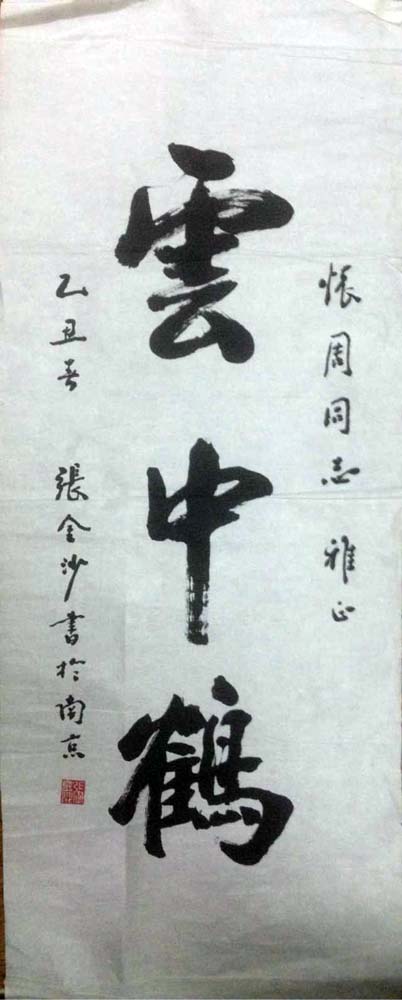 怅周同志雅正
雲中鶴
乙丑春 張金沙書於南京